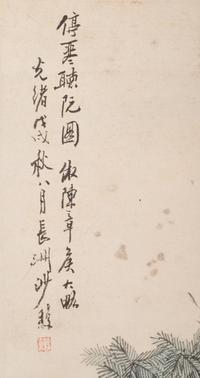 停琴聴阮圖 倣陳章侯大略
光緒戊戌秋八月長洲沙馥